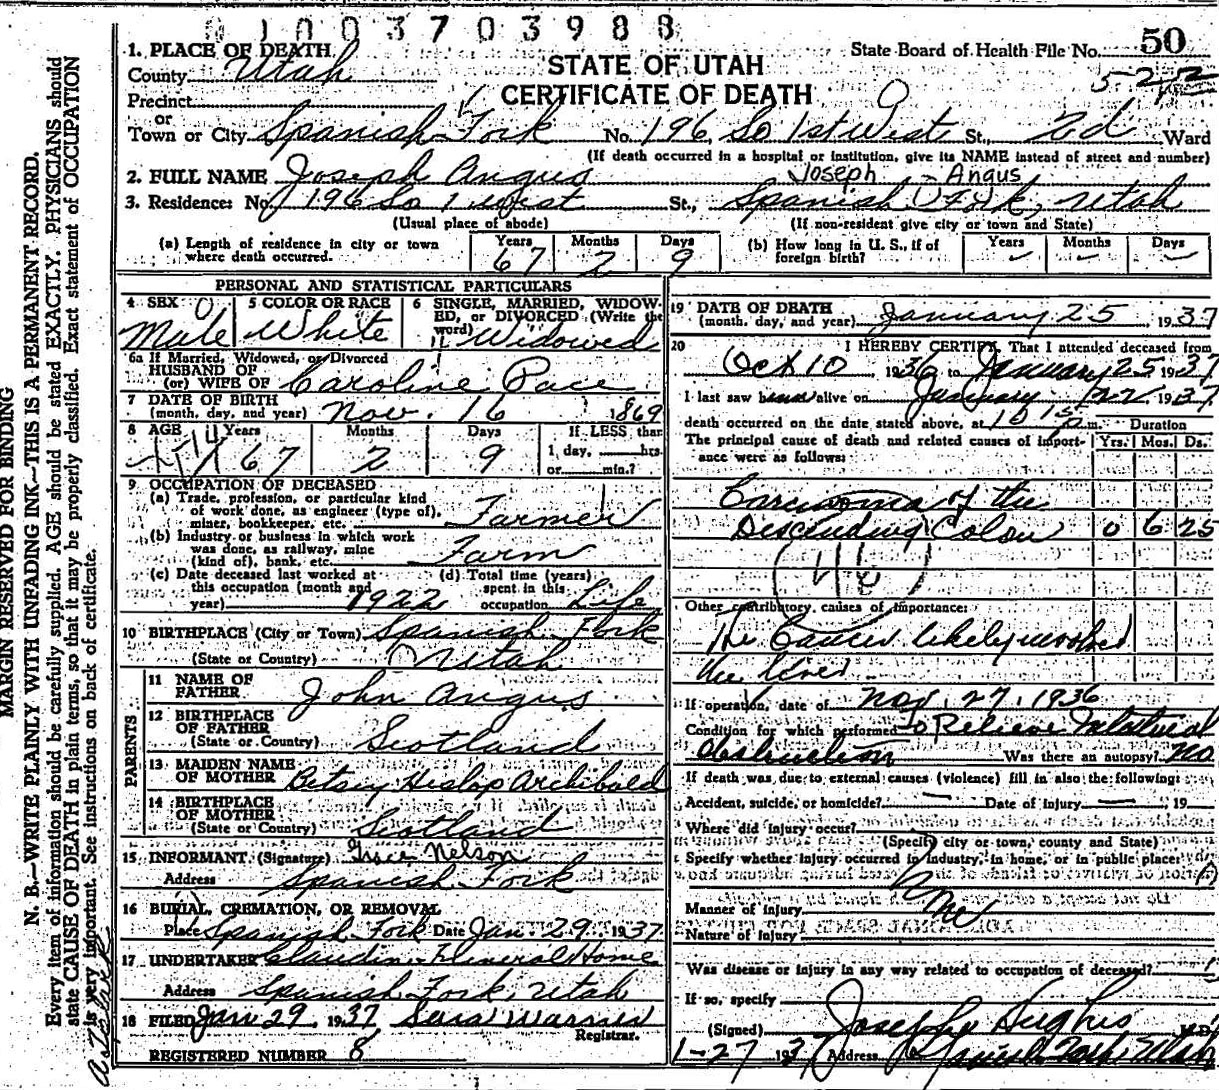 01003703988
1. PLACE OF DEATH
County Utah
STATE OF UTAH
CERTIFICATE OF DEATH
State Board of Health File No. 50
Precinct
or
Town or City Spanish Fork No. 196 So 1st West St., 2d Ward
(If death occurred in a hospital or institution, give its NAME instead of street and number)
2. FULL NAME Joseph Angus Joseph - Angus
3. Residence: No. 196 So 1 west St., Spanish Fork, Utah
(Usual place of abode) (If non-resident give city or town and State)
(a) Length of residence in city or town where death occurred. Years 67 Months 2 Days 9
(b) How long in U. S., if of foreign birth? Years - Months - Days -
PERSONAL AND STATISTICAL PARTICULARS
4 SEX Male
5 COLOR OR RACE White
6 SINGLE, MARRIED, WIDOWED, or DIVORCED (Write the word) Widowed
6a If Married, Widowed, or Divorced
HUSBAND OF
(or) WIFE OF Caroline Pace
7 DATE OF BIRTH
(month, day, and year) Nov. 16 1869
8 AGE Years 67 Months 2 Days 9 If LESS than 1 day, ___ hrs. or ___ min.?
9 OCCUPATION OF DECEASED
(a) Trade, profession, or particular kind of work done, as engineer (type of), miner, bookkeeper, etc. Farmer
(b) Industry or business in which work was done, as railway, mine (kind of), bank, etc. Farm
(c) Date deceased last worked at this occupation (month and year) 1922
(d) Total time (years) spent in this occupation Life
10 BIRTHPLACE (City or Town) Spanish Fork
(State or Country) Utah
PARENTS
11 NAME OF FATHER John Angus
12 BIRTHPLACE OF FATHER
(State or Country) Scotland
13 MAIDEN NAME OF MOTHER Betsey Heslop Archibald
14 BIRTHPLACE OF MOTHER
(State or Country) Scotland
15 INFORMANT (Signature) Grace Nelson
Address Spanish Fork
16 BURIAL, CREMATION, OR REMOVAL
Place Spanish Fork Date Jan. 29. 1937
17 UNDERTAKER Claudin Funeral Home
Address Spanish Fork, Utah
18 FILED Jan 29 1937 Sara Warner
Registrar.
REGISTERED NUMBER 8
19 DATE OF DEATH
(month, day, and year) January 25 1937
20 I HEREBY CERTIFY, That I attended deceased from
Oct 10 1936 to January 25 1937
I last saw alive on January 22 1937
death occurred on the date stated above, at 10 15 p m. Duration
The principal cause of death and related causes of importance were as follows: Yrs. Mos. Ds.
Carcinoma of the
Descending Colon 0 6 25
Other contributory causes of importance:
The Cancer likely involved
the liver
If operation, date of Nov. 27, 1936
Condition for which performed To Relieve Intestinal
obstruction Was there an autopsy? no
If death was due to external causes (violence) fill in also the following:
Accident, suicide, or homicide? — Date of injury — 19
Where did injury occur?
(Specify city or town, county and State)
Specify whether injury occurred in industry, in home, or in public place:
Manner of injury
Nature of injury
Was disease or injury in any way related to occupation of deceased?
If so, specify
(Signed) Joseph Hughes M.D.
1-27 1937 Address Spanish Fork, Utah
MARGIN RESERVED FOR BINDING
N. B.—WRITE PLAINLY WITH UNFADING INK—THIS IS A PERMANENT RECORD.
Every item of information should be carefully supplied. AGE should be stated EXACTLY. PHYSICIANS should
state CAUSE OF DEATH in plain terms, so that it may be properly classified. Exact statement of OCCUPATION
is very important. See instructions on back of certificate.